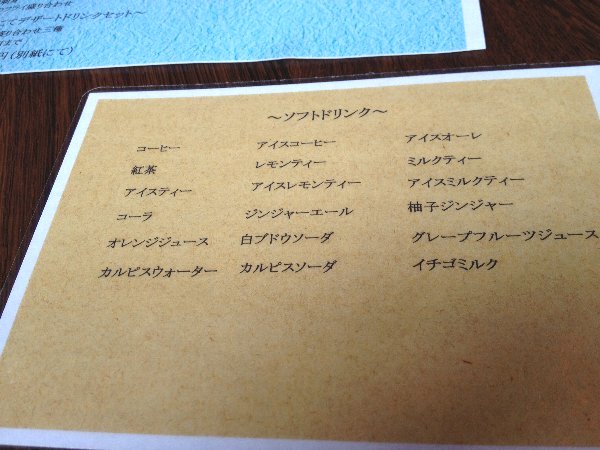 フライ盛り合わせ
にてデザートドリンクセット〜
盛り合わせ三種
まで
（別紙にて）
〜ソフトドリンク〜
コーヒー アイスコーヒー アイスオーレ
紅茶 レモンティー ミルクティー
アイスティー アイスレモンティー アイスミルクティー
コーラ ジンジャーエール 柚子ジンジャー
オレンジジュース 白ブドウソーダ グレープフルーツジュース
カルピスウォーター カルピスソーダ イチゴミルク